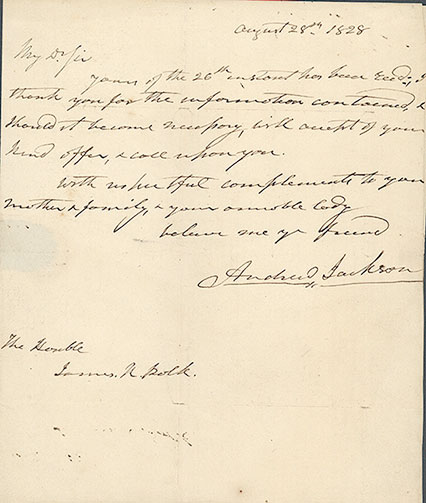 August 28th 1828
My Dr Sir
yours of the 26th instant has been recd, I
thank you for the information contained, &
should it become necessary, will accept of your
kind offer, & call upon you.
with respectful complements to your
mother & family, & your amiable lady
believe me yr friend
Andrew Jackson
The Honble
James. K Polk.